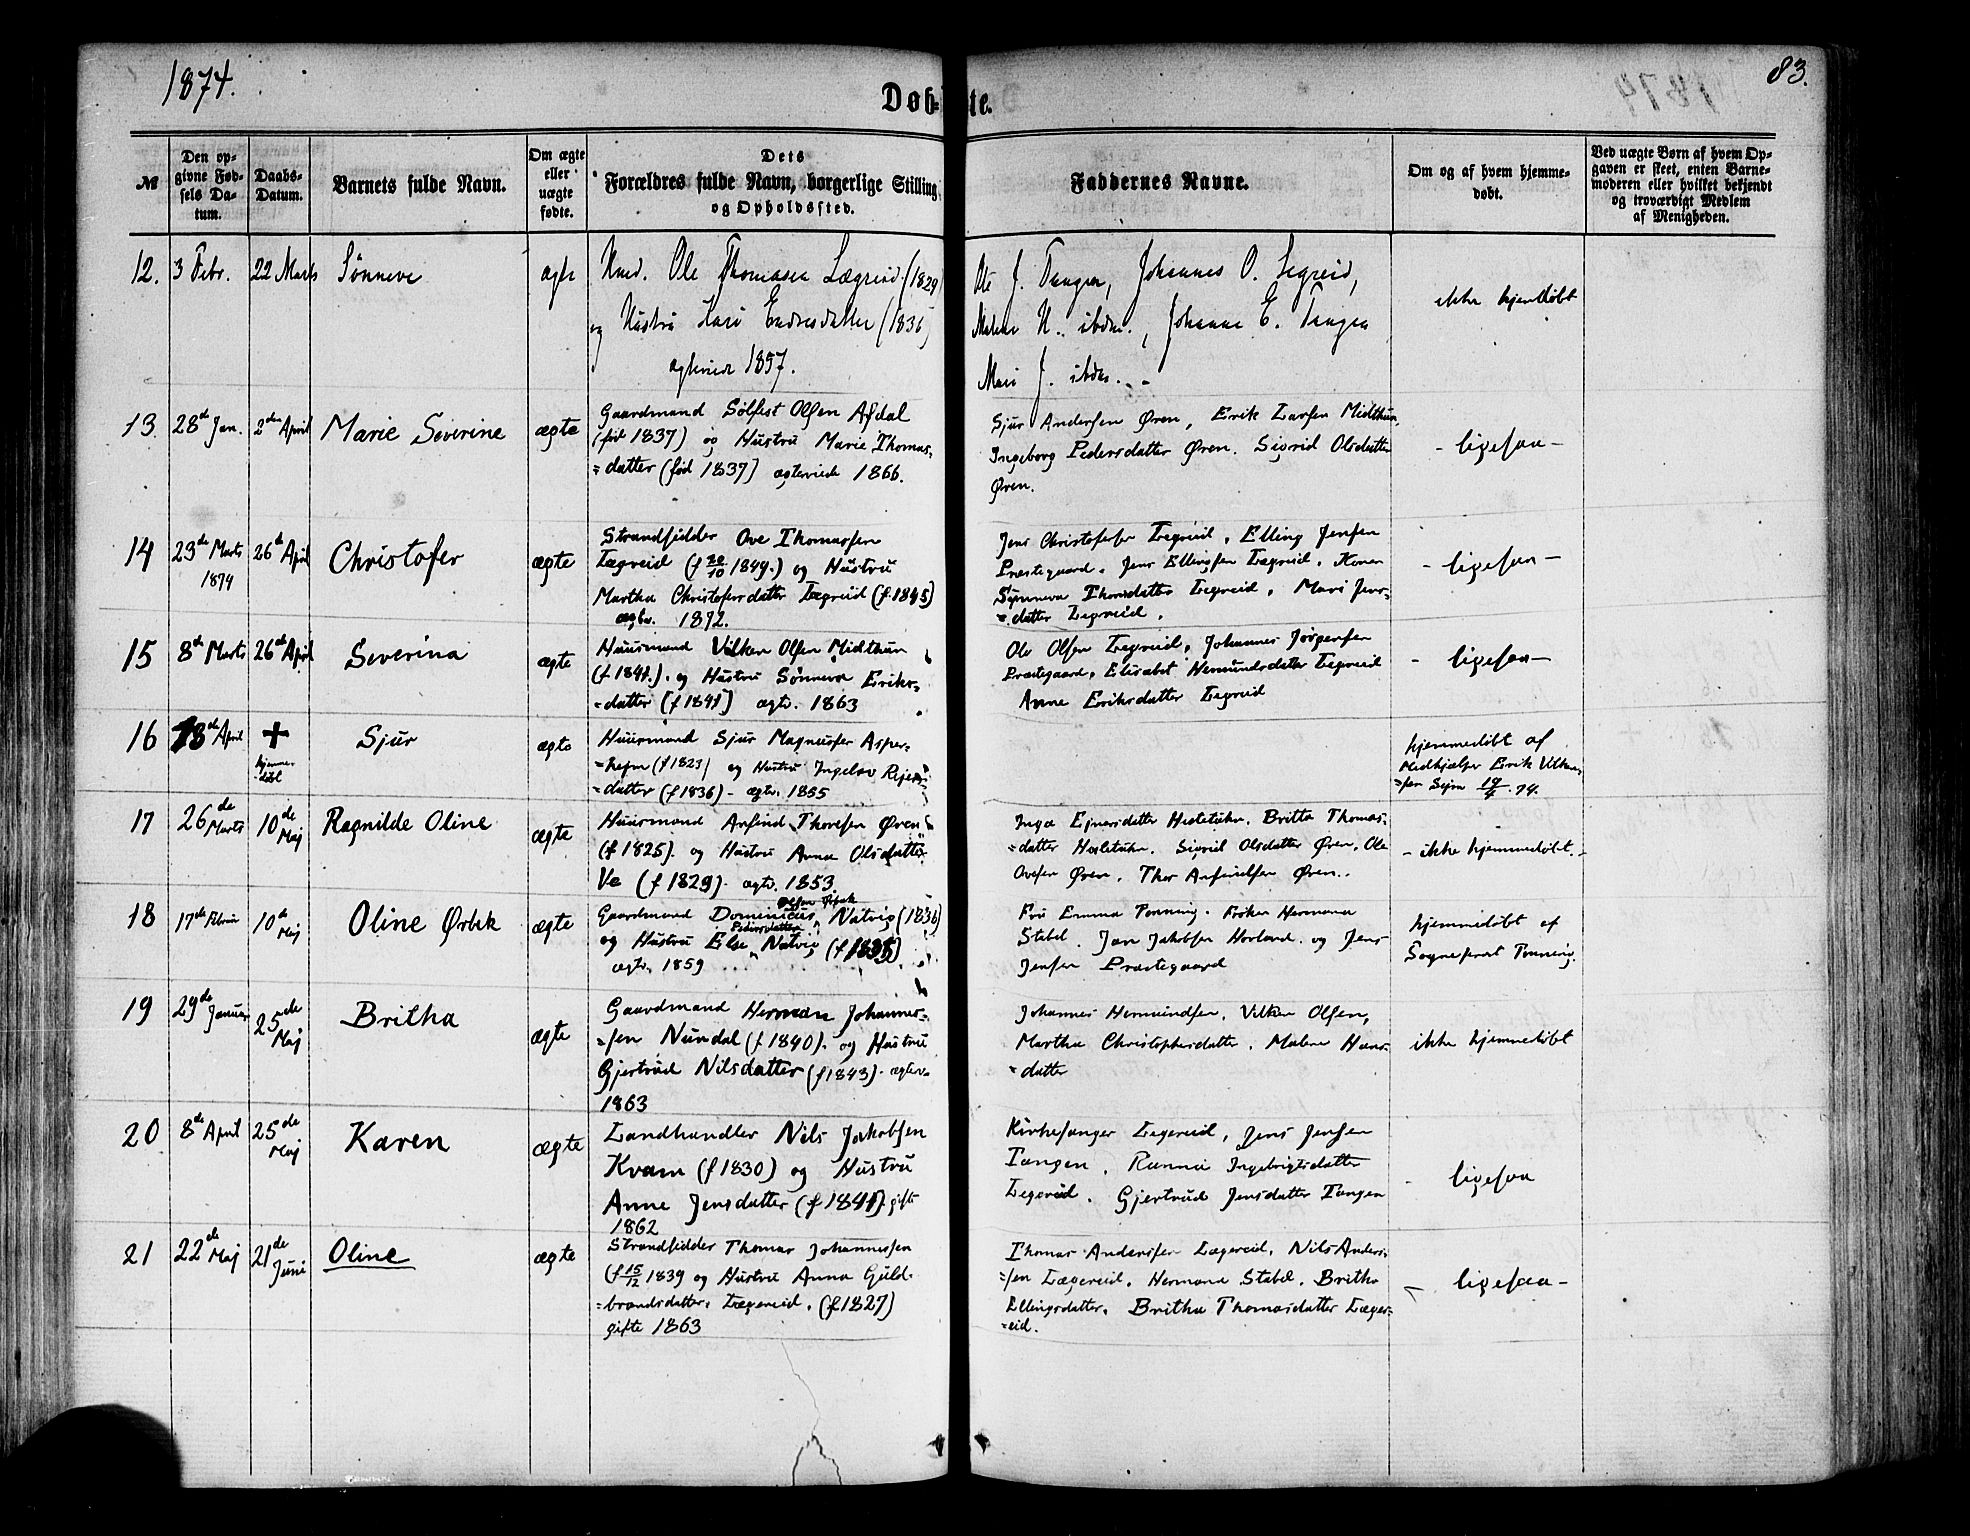 1874.
83.
Døbte.
№
Den opgivne Fødsels Datum.
Daabs-Datum.
Barnets fulde Navn.
Om ægte eller uægte fødte.
Dets Forældres fulde Navn, borgerlige Stilling og Opholdssted.
Faddernes Navne.
Om og af hvem hjemmedøbt.
Ved uægte Børn af hvem Opgaven er skeet, enten Barnemoderen eller hvilket bekjendt og troværdigt Medlem af Menigheden.
12. 3 Febr. 22 Marts Sønneve ægte
Ole Thomasen Lægreid (1829)
og Hustru Kari Endresdatter (1836)
1857.
Ole J. Tangen, Johannes O. Legreid,
Malene N. ibdm., Johanne E. Tangen
Mari J. ibdm.
ikke hjemdøbt
13. 28de Jan. 2den April Marie Severine ægte
Gaardmand Sølfest Olsen Afdal
(fød 1837) og Hustru Marie Thomas-
=datter (fød 1837) ægteviede 1866.
Sjur Andersen Øren, Erik Larsen Midthun,
Ingeborg Pedersdatter Øren. Sigrid Olsdatter
Øren.
- ligesaa -
14 23de Marts 1874 26de April Christofer ægte
Strandsidder Ove Thomassen
Lægreid (f 20/10 1849.) og Hustru
Martha Christofersdatter Lægreid (f. 1845)
ægtv. 1872.
Jens Christofersen Legreid, Elling Jensen
Præstegaard, Jens Ellingsen Lægreid, Konen
Synneva Thorsdatter Legreid, Mari Jens-
=datter Legreid.
- ligesaa -
15 8de Marts 26de April Severina ægte
Huusmand Vilken Olsen Midthun
(f 1841.). og Hustru Sønneva Eriks-
=datter (f 1841) ægtv. 1863
Ole Olsen Legreid, Johannes Jørgensen
Præstegaard, Elisabet Hermundsdatter Legreid
Anne Eriksdatter Legreid
- ligesaa -
16 18de April + hjemme-døbt Sjur ægte
Huusmand Sjur Magnusen Asper-
(f 1823) og Hustru
=datter (f 1836) - ægtv. 1855
hjemmedøbt af
Medhjælper Erik Vilken-
=sen 19/4 74.
17 26de Marts 10de Maj Ragnilde Oline ægte
Huusmand Anfind Thoresen Øren
(f 1825). og Hustru Anna Olsdatter
Ve (f 1829). ægtv. 1853.
Inga Ejnersdatter Hestetuhn. Britta Thomas-
=datter Hestetuhn. Sigrid Olsdatter Øren. Ole
Ovesen Øren, Thor Anfindsen Øren.
- ikke hjemmedøbt. -
18 17de Februar 10de Maj Oline Ørbek ægte
Olsen Ørbek
Gaardmand Dominicus Natvig (1836)
Pedersdatter
og Hustru Else Natvig (f 1835)
ægtv. 1859
Fru Emma Tønning. Frøken Hermana
Stabel. Jan Jakobsen Hovland. og Jens
Jensen Præstegaard
hjemmedøbt af
Sogneprest Tønning.
19 29de Januar 25de Maj Britha ægte
Gaardmand Herman Johannes-
=sen Nundal (f 1840). og Hustru
Gjertrud Nilsdatter (f 1843). ægtev-
1863
Johannes Hermundsen, Vilken Olsen,
Martha Christophersdatter, Malene Hans-
=datter
ikke hjemmedøbt
20 8de April 25de Maj Karen ægte
Landhandler Nils Jakobsen
Kvam (f 1830) og Hustru
Anne Jensdatter (f 1841) gifte
1862
Kirkesanger Legreid, Jens Jensen
Tangen, Ranna Ingebrigtsdatter
Legreid. Gjertrud Jensdatter Tangen
- ligesaa
21 22de Maj 21de Juni Oline ægte
Strandsidder Thomas Johannessen
(f 15/12 1839 og Hustru Anna Guld-
=brandsdatter. Lægereid. (f 1827)
gifte 1863
Thomas Andersen Lægereid, Nils Anders-
=sen Lægereid, Hermana Stabel. Britha
Ellingsdatter. Britha Thomasdatter Læger-
=eid.
- ligesaa -